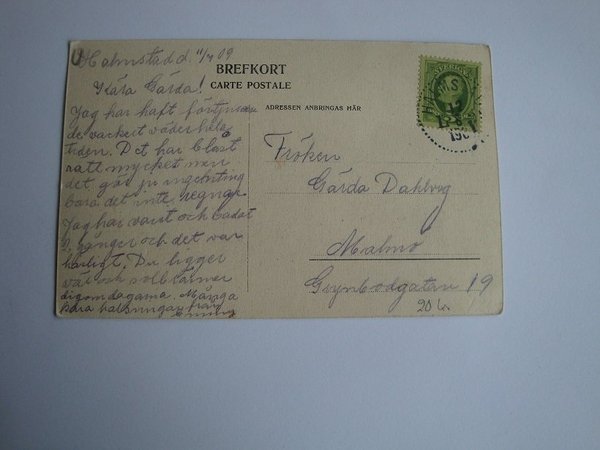 Halmstad d. 11/7 09
Kära Gärda!
Jag har haft förtjusan
de vackert väder hela
tiden. Det har blåst
rätt mycket men
det gör ju ingenting
bara det inte regnar
Jag har varit och badat
2 gånger och det var
härligt. Du ligger
väl och solbränner
dig om dagarna. Många
kära hälsningar från
BREFKORT
CARTE POSTALE
ADRESSEN ANBRINGAS HÄR
SVERIGE
Fröken
Gärda Dahlberg
Malmö
Grynbodgatan 19
20 kr